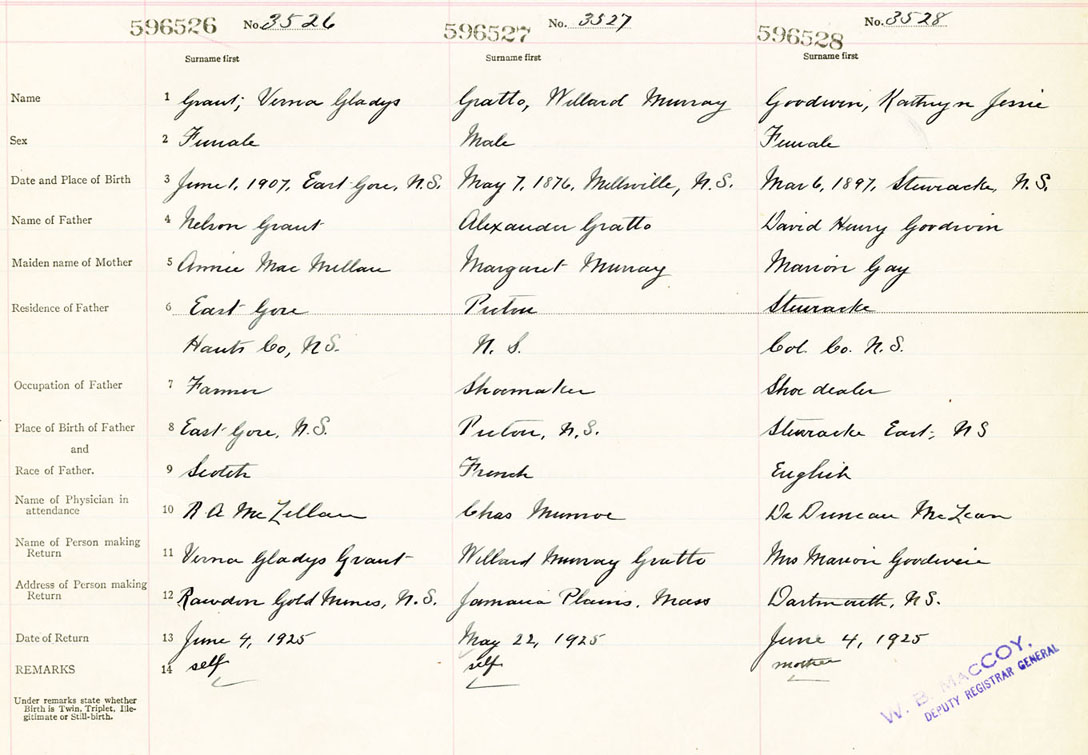 596526 No. 3526 596527 No. 3527 596528 No. 3528
Surname first Surname first Surname first
Name 1 Grant, Verna Gladys Gratto, Willard Murray Goodwin, Kathryn Jessie
Sex 2 Female Male Female
Date and Place of Birth 3 June 1, 1907, East Gore, N.S. May 7, 1876, Millsville, N.S. Mar 6, 1897, Stewiacke, N.S.
Name of Father 4 Nelson Grant Alexander Gratto David Henry Goodwin
Maiden name of Mother 5 Annie MacMillan Margaret Murray Marion Gay
Residence of Father 6 East Gore Pictou Stewiacke
Hants Co, N.S. N.S. Col. Co. N.S.
Occupation of Father 7 Farmer Shoemaker Shoe dealer
Place of Birth of Father 8 East Gore, N.S. Pictou, N.S. Stewiacke East, NS
and
Race of Father. 9 Scotch French English
Name of Physician in
attendance 10 R A McLellan Chas Munroe Dr Duncan McLean
Name of Person making
Return 11 Verna Gladys Grant Willard Murray Gratto Mrs Marion Goodwin
Address of Person making
Return 12 Rawdon Gold Mines, N.S. Jamaica Plains, Mass Dartmouth, N.S.
Date of Return 13 June 4, 1925 May 22, 1925 June 4, 1925
REMARKS 14 self self mother
Under remarks state whether
Birth is Twin, Triplet, Ille-
gitimate or Still-birth.
W. B. MACCOY,
DEPUTY REGISTRAR GENERAL